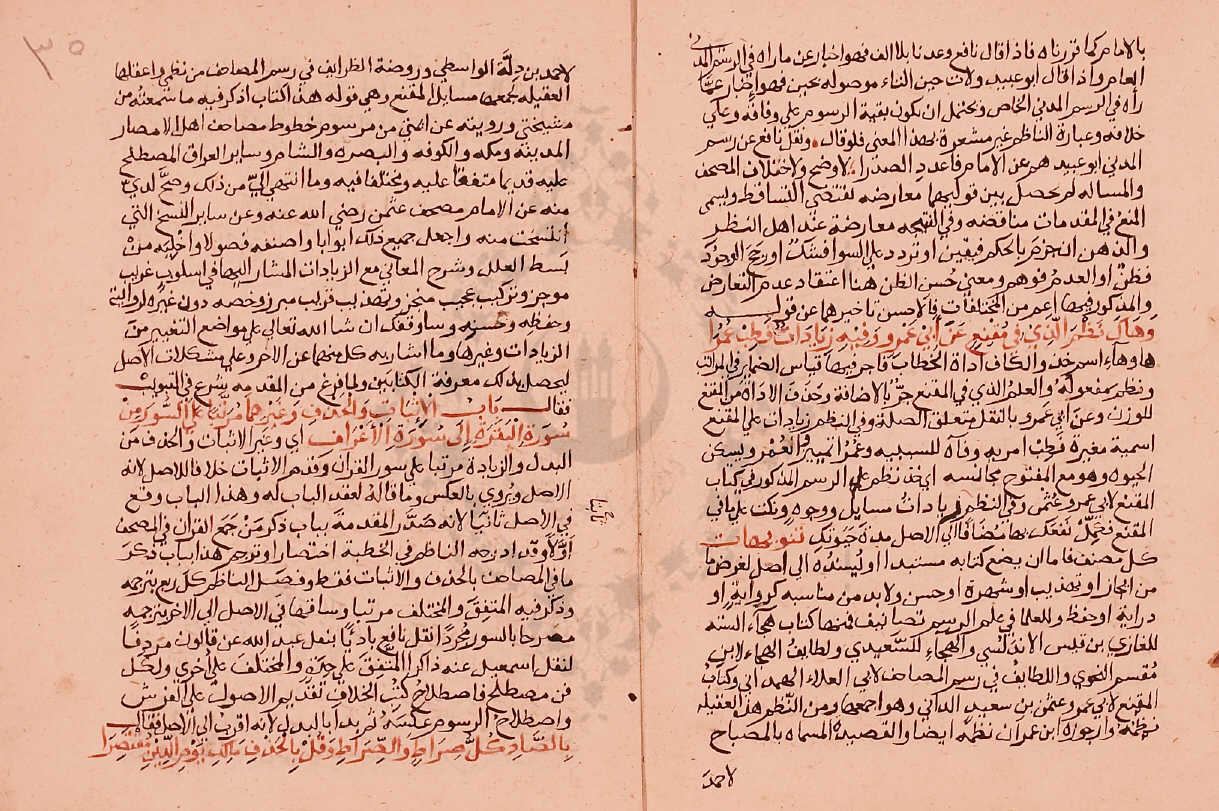 بالامام كما قررناه فاذا قال نافع وعدنا بلا الف فهو اخبار عن ما راه في الرسم المدني
العام واذا قال ابو عبيد ولات حين التاء موصوله بحين فهو اخبار عما
رأه في الرسم المدني الخاص ويحتمل ان يكون بقية الرسوم على وفاقه وعلى
خلافه وعبارة الناظم غير مشعرة بهذا المعنى فلو قال ونقل نافع عن رسم
المدني ابو عبيدهم عن الامام فاعدد الصدرا لاوضح ولاختلاف المصحف
والمساله لم يحصل بين قوليهما معارضه لتقتضي التساقط ويسمى
المنع في المقدمات مناقضه وفي النتيجه معارضة عند اهل النظر
والذهن ان جزم بالحكم فيقين او تردد على السوا فشك او رجح الوجود
فظن او العدم فوهم ومعنى حسن الظن هنا اعتقاد عدم التعارض
والمذكور فيهما اعم من المختلفات فالاحسن تاخيرهما عن قوله
وهاك نظم الذي في مقنع عن ابي عمرو وفيه زيادات فطب عمرا
ها وهاء اسم خذ والكاف اداة الخطاب فاجر فيها قياس الضماير في المراتب
ونظم مفعوله والعلم الذي في المقنع جر بالاضافة وحذف الاداة من المقنع
للوزن وعن ابي عمرو بالنقل متعلق الصلة وفي النظم زيادات على المقنع
اسمية مغيرة فطب امريه وفاه للسببيه وعمرا تمييز العمر ويسكن
الحيوه وهو مع المفتوح مجانسه اي خذ نظم على الرسم المذكور في كتاب
المقنع لابي عمرو عثمن وفي النظم زيادات مسايل ووجوه ونكت على ما في
المقنع فكمل نفعك بها مضافا الى الاصل مدة حيوتك تنويهات
كل مصنف فاما ان يضع كتابه مستبدا او يسنده الى اصل لغرض ما
من ايجاز او تهذيب او شهرة او حسن ولا بد من مناسبه كرواية او
دراية او حفظ وللعلما في علم الرسم تصانيف فمنها كتاب هجاء السنه
للغازي بن قيس الاندلسي والهجاء للسعيدي ولطايف الهجاء لابن
مقسم النحوي واللطايف في رسم المصاحف لابي العلاء الهمداني وكتاب
المقنع لابي عمرو عثمن بن سعيد الداني وهو اجمعها ومن النظم هذه العقيله
نظمه وارجوزة ابن عمران نظمه ايضا والقصيدة المسماه بالمصباح
لاحمد
٣٥
لاحمد بن دلة الواسطي وروضة الطرايف في رسم المصاحف من نظمي واعقلها
العقيله لجمعها مسايل المقنع وهي قوله هذا كتاب اذكر فيه ما سمعته من
مشيختي ورويته عن ائمتي من مرسوم خطوط مصاحف اهل الامصار
المدينة ومكه والكوفه والبصره والشام وساير العراق المصطلح
عليه قديما متفقا عليه ومختلفا فيه وما انتهى الي من ذلك وصح لدي
منه عن الامام مصحف عثمن رضي الله عنه وعن ساير النسخ التي
انتسخت منه واجعل جميع ذلك ابوابا واصنفه فصولا واخليه من
بسط العلل وشرح المعاني مع الزيادات المشار اليها في اسلوب غريب
موجز وتركيب عجيب منجز وتهذيب قريب مبرز وخصه دون غيره لروايته
وحفظه وحسنه وساوقفك ان شا الله تعالى على مواضع التغيير من
الزيادات وغيرها وما اشار به كل منهما عن الاخر وعلى مشكلات الاصل
ليحصل بذلك معرفة الكتابين ولما فرغ من المقدمه شرع في التبويب
فقال باب الاثبات والحذف وغيرهما مرتبا على السور من
سورة البقرة الى سورة الاعراف اي وغير الاثبات والحذف من
البدل والزيادة مرتبا على سور القرآن وقدم الاثبات خلافا للاصل لانه
الاصل ويروى بالعكس وما قاله لعقد الباب له وهذا الباب وقع
في الاصل ثانيا لانه صدر المقدمة بباب ذكر من جمع القرآن في المصحف
اولا وقد ادرجه الناظم في الخطبة اختصارا وترجم هذا باب ذكر
ما في المصاحف بالحذف والاثبات فقط وفصل الناظم كل ربع بترجمه
وذكر فيه المتفق والمختلف مرتبا وساقها في الاصل الى الاخر بترجمه
مصرحا بالسور مجردا نقل نافع باديا بنقل عبد الله عن قالون مردفا
لنقل اسمعيل عنه ذاكرا المتفق على حدة والمختلف على اخرى ولكل
فن مصطلح فاصطلاح كتب الخلاف تقديم الاصول على الفرش
واصطلاح الرسوم عكسه ثم بدا بالبدل لانه اقرب الى الاصل فقال
بالصاد كل صراط والصراط وقل بالحذف مالك يوم الدين مقتصرا